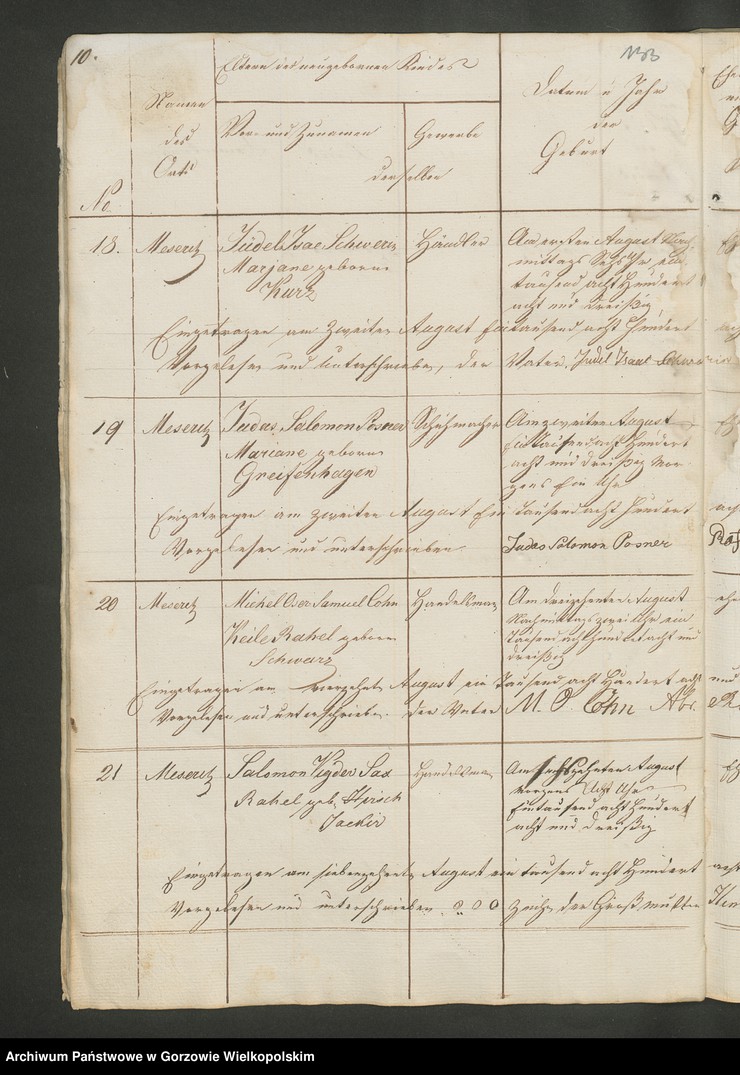 10.
Eltern des neugebornen Kindes
Namen
des
Orts
No
Vor- und Zunamen
Gewerbe
derselben
Datum u Jahr
der
Geburt
18. Meseritz Jüdel Isac Schwerin Händler Am ersten August Nach-
Marjane geborne mittags Uhr ein
Kurz tausend acht Hundert
acht und dreißig
Eingetragen am zweiten August Eintausend acht Hundert
Vorgelesen und unterschrieben, der Vater Judel Isaac Schwerin
19 Meseritz Judas Salomon Posner Schuhmacher Am zweiten August
Mariane geborne Ein Tausend acht Hundert
Greifenhagen acht und dreißig Mor-
gens Ein Uhr
Eingetragen am zweiten August Ein Tausend acht Hundert
Vorgelesen und unterschrieben Judas Solomon Posner
20 Meseritz Michel Oser Samuel Cohn Handelsman Am dreizehnten August
Keile Rahel geborne Nachmittags zwei Uhr ein
Schwarz Tausend acht Hundert acht und
dreißig
Eingetragen am vierzehnten August ein Tausend acht Hundert acht und
Vorgelesen und unterschrieben. Der Vater M. O. Cohn
21 Meseritz Salomon Vigder Sax Handelsman Am sechszehnten August
Rahel geb. Hirsch Morgens Acht Uhr
Jackir Eintausend acht Hundert
acht und dreißig
Eingetragen am siebenzehnten August ein tausend acht Hundert
Vorgelesen und unterschrieben der Großmutter
Archiwum Państwowe w Gorzowie Wielkopolskim